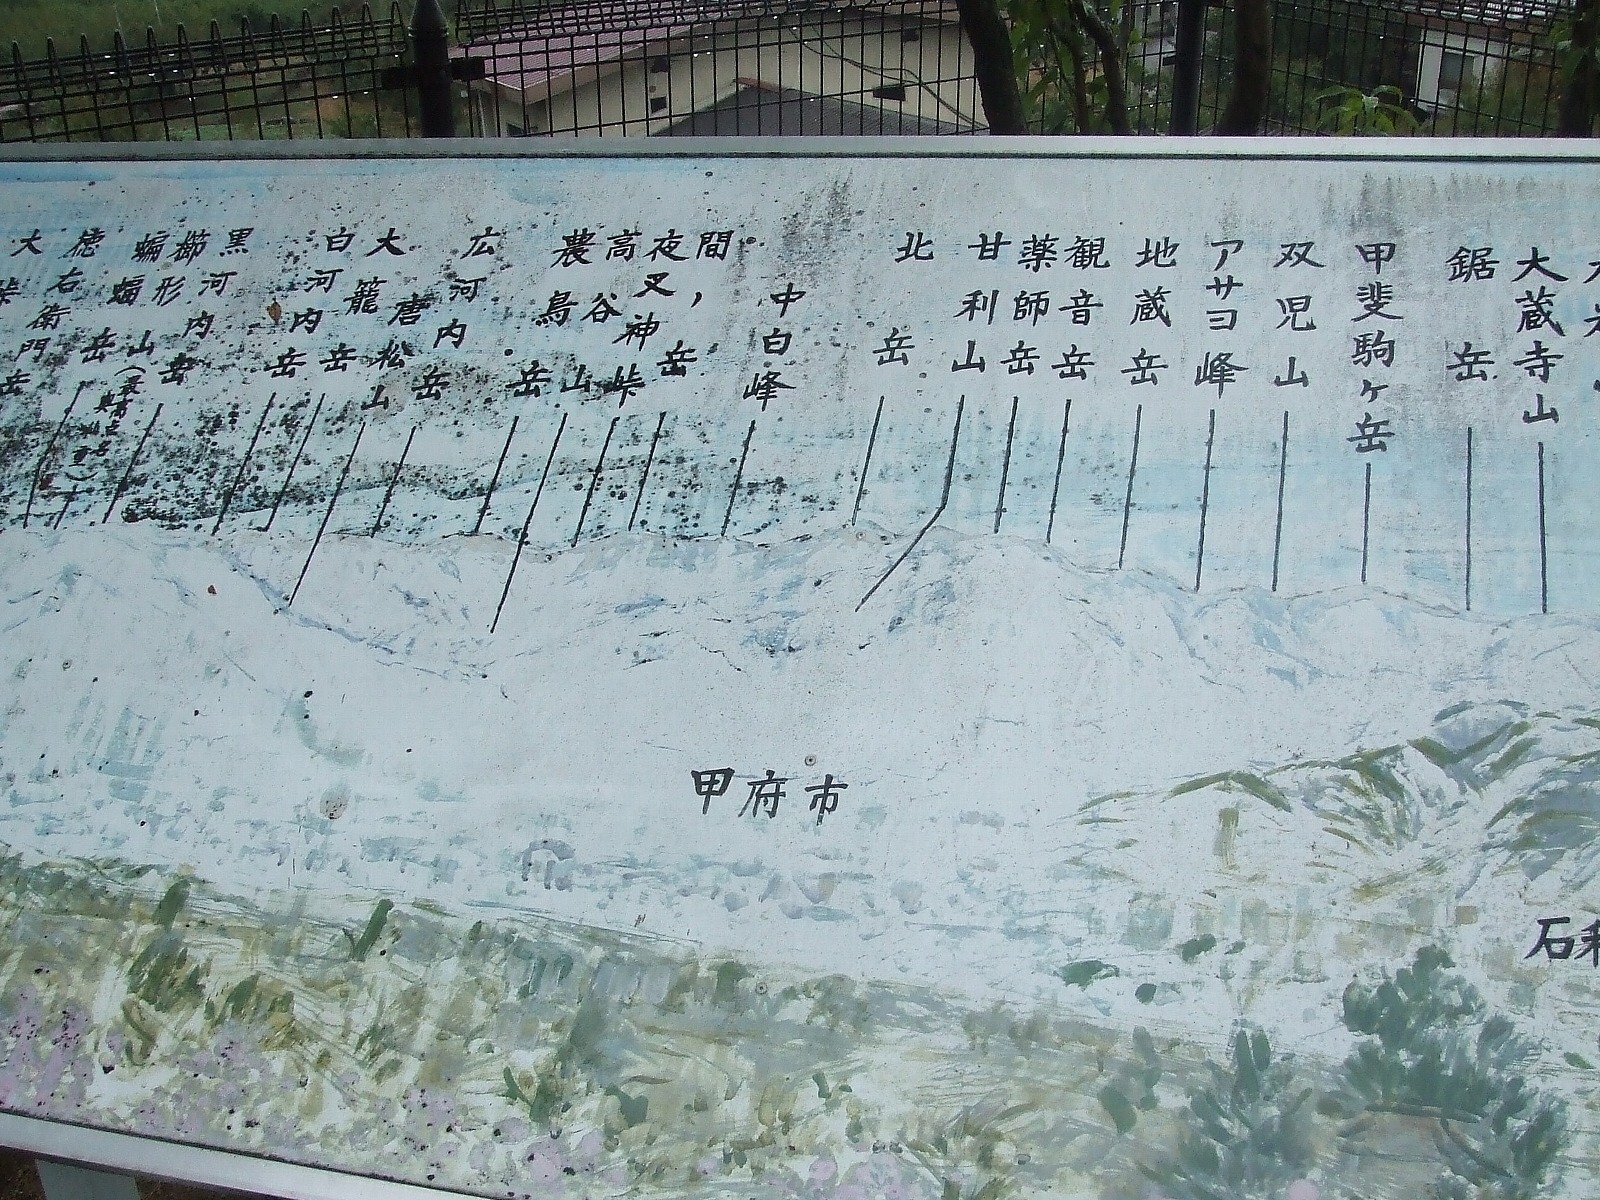 大
徳右衛門岳
蝙蝠岳
櫛形山
黒河内岳
白河内岳
大籠岳
唐松山
広河内岳
農鳥岳
高谷山
夜叉神峠
間ノ岳
中白峰
北岳
甘利山
薬師岳
観音岳
地蔵岳
アサヨ峰
双児山
甲斐駒ヶ岳
鋸岳
大蔵寺山
甲府市
石